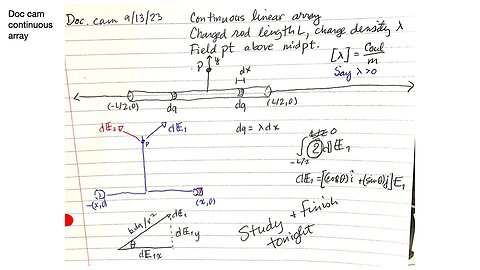 Doc cam
continuous
array
Doc. cam 9/13/23
Continuous linear array
Charged rod length L, charge density λ
Field pt above midpt.
[λ] = Coul/m
Say λ>0
P
y
dx
(-L/2,0)
dq
dq
(L/2,0)
dE₂
dE₁
P
dq = λdx
-L/2
0
2
dE₁
dE₁ = [(cosθ)î + (sinθ)ĵ]E₁
-(x,0)
(x,0)
kdq/r²
dE₁
dE₁y
θ
dE₁x
Study + finish
tonight